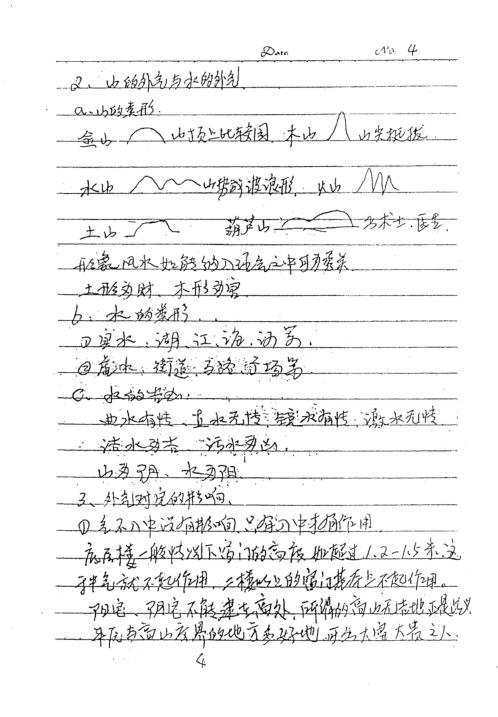 Date No. 4
2、山的外气与水的外气
a.山的类形:
金山 山顶上比较园、木山 山尖挺拔
水山 山势有波浪形、火山
土山 葫芦山 为术士、医生.
形象风水 入 中
土形为财、木形为富
b、水的类形、.
①实水、湖、江、海、河等.
②虚水、街道、马路、广场等
C、水的吉凶:
曲水有情、直水无情、镜水有情、激水无情
洁水为吉、污水为凶,
山为阴、水为阳.
3、外气对宅的影响、
①气不入中没有影响、只有入中才有作用.
底层楼一般情况下窗门的高度如超过1.2-1.5米、这
种气就不起作用,二楼以上的窗门基本上不起作用。
阳宅、阴宅不能建在高处,所谓的高山无吉地正是此义
平原与高山交界的地方多好地、可出大富大贵之人.
4